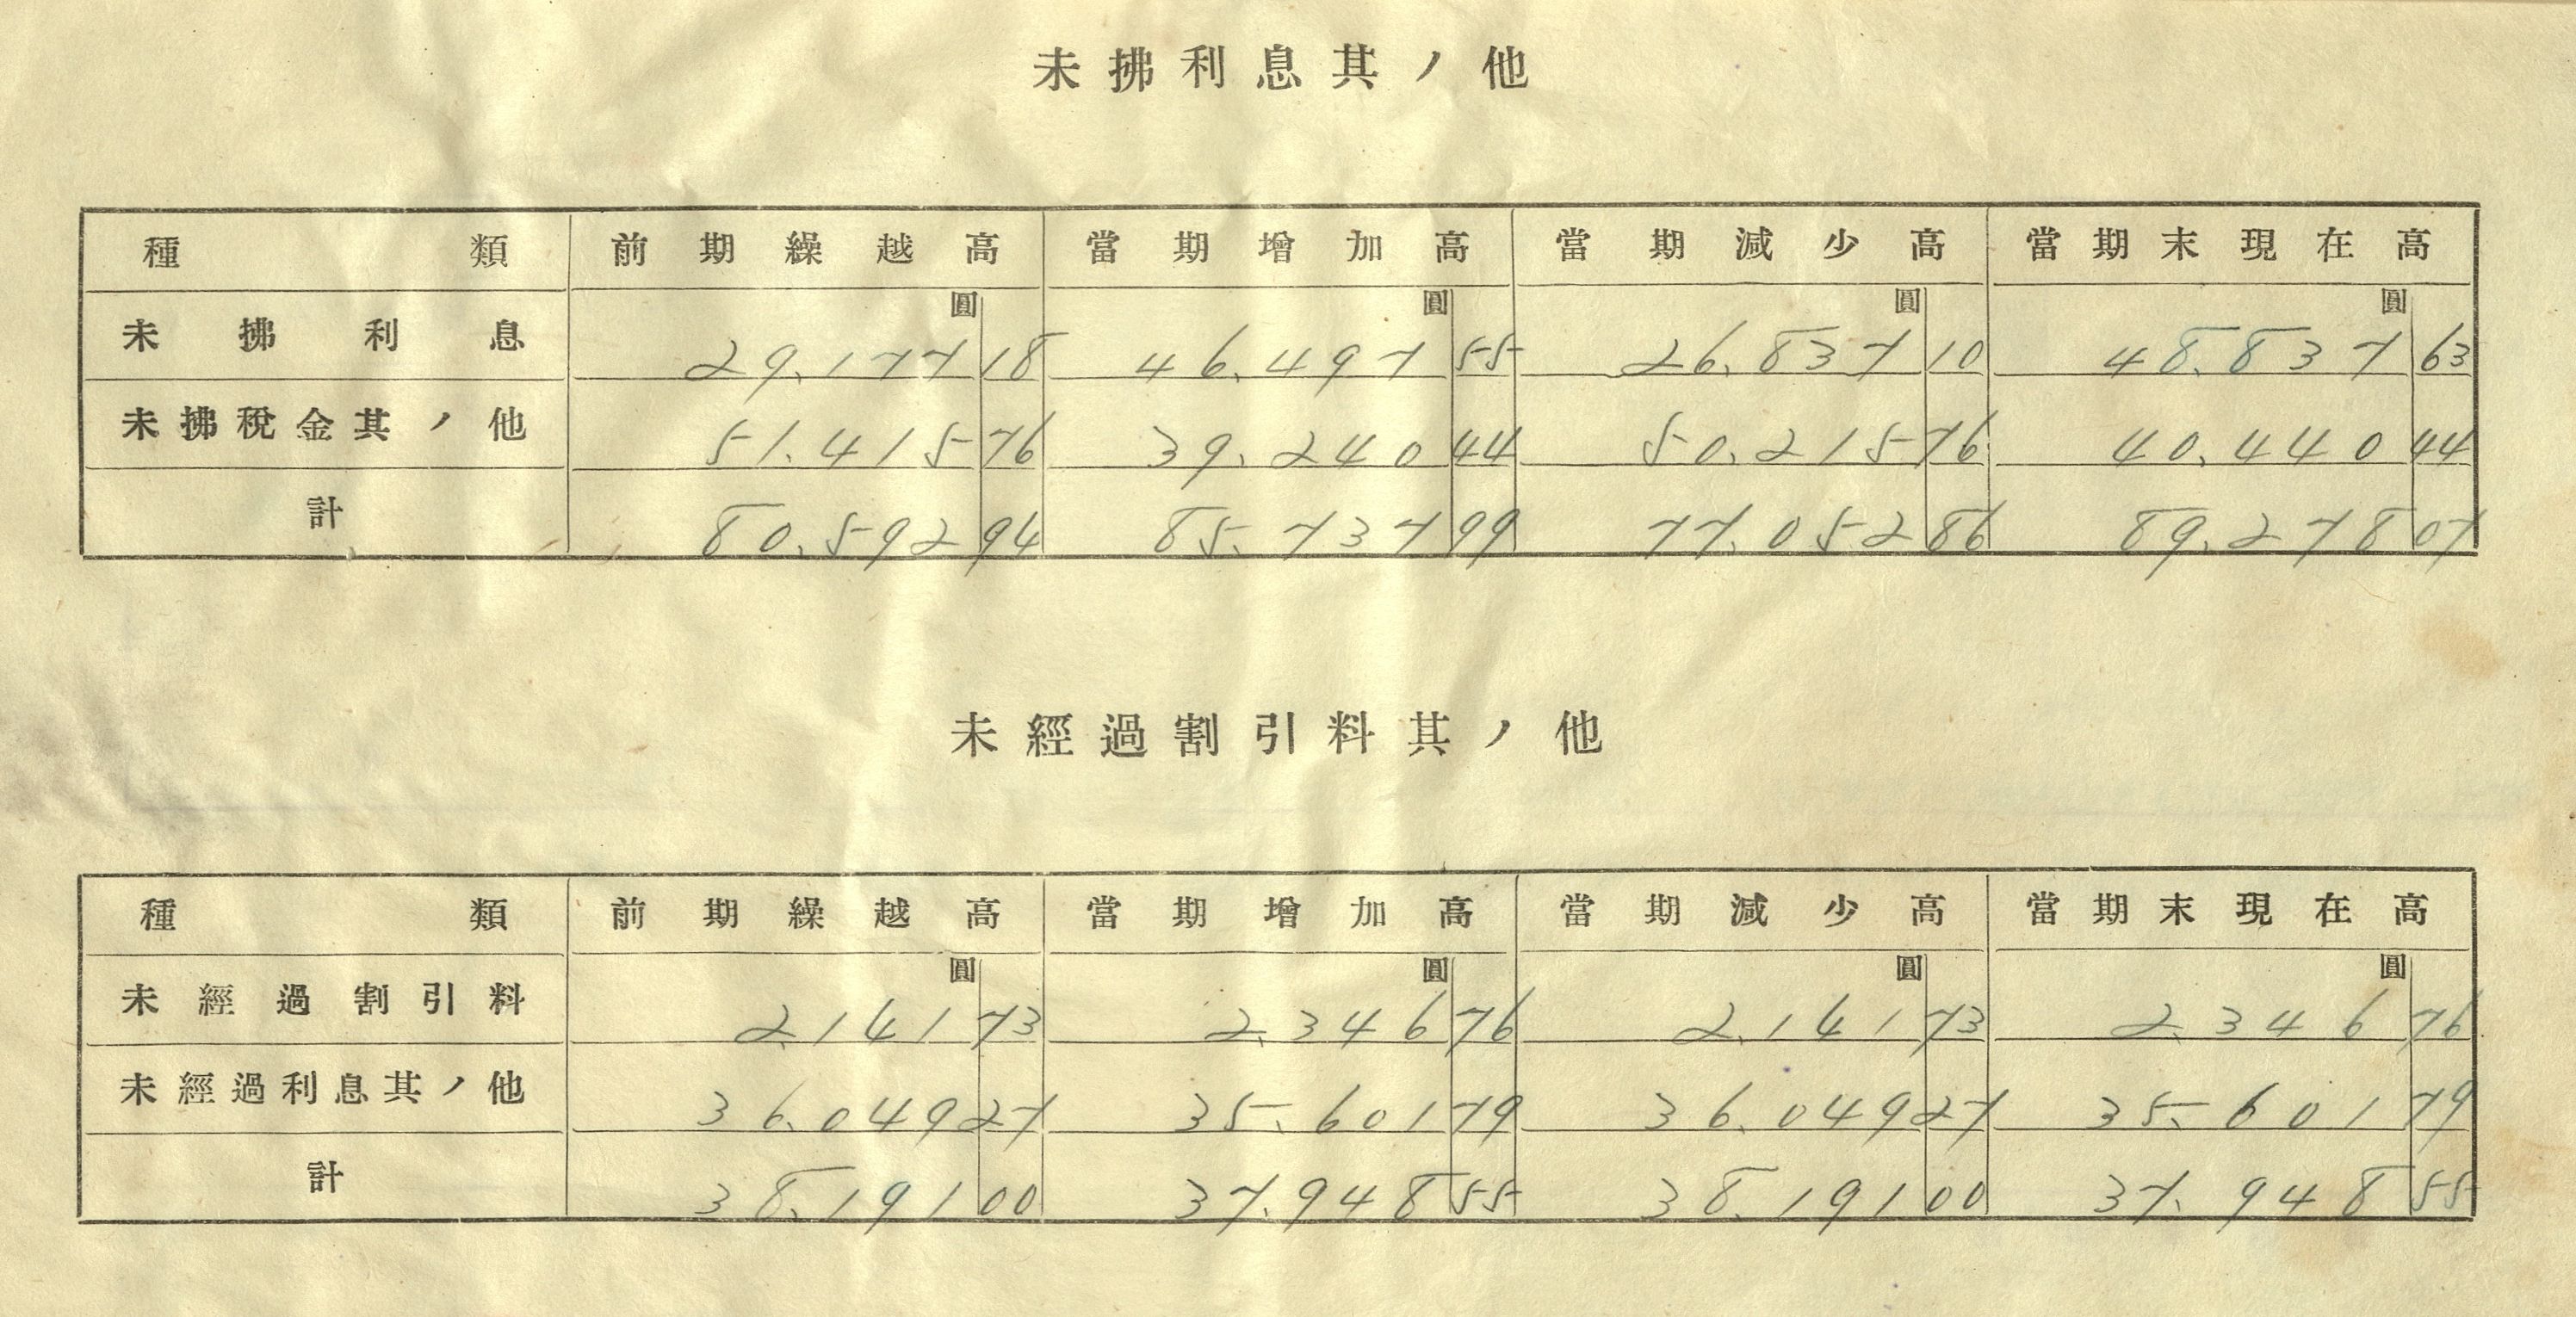 未拂利息其ノ他
種類 前期繰越高 當期增加高 當期減少高 當期末現在高
圓 圓 圓 圓
未拂利息 29,177 18 46,497 55 26,837 10 48,837 63
未拂稅金其ノ他 51,415 76 39,240 44 50,215 76 40,440 44
計 80,592 94 85,737 99 77,052 86 89,278 07
未經過割引料其ノ他
種類 前期繰越高 當期增加高 當期減少高 當期末現在高
圓 圓 圓 圓
未經過割引料 2,141 73 2,346 76 2,141 73 2,346 76
未經過利息其ノ他 36,049 27 35,601 79 36,049 27 35,601 79
計 38,191 00 37,948 55 38,191 00 37,948 55